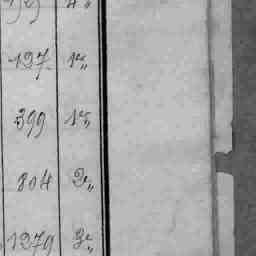 127 1 "
399 1 "
804 2 "
1279 3 "